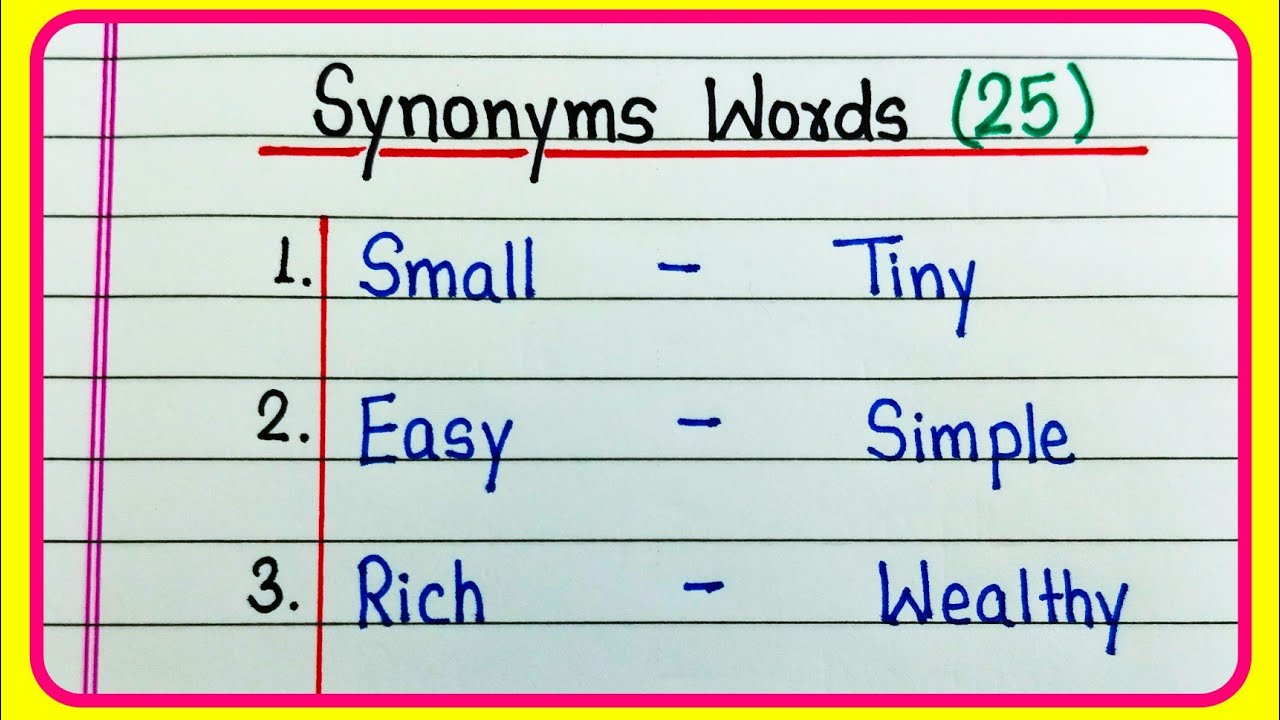 Synonyms Words (25)
1. Small - Tiny
2. Easy - Simple
3. Rich - Wealthy